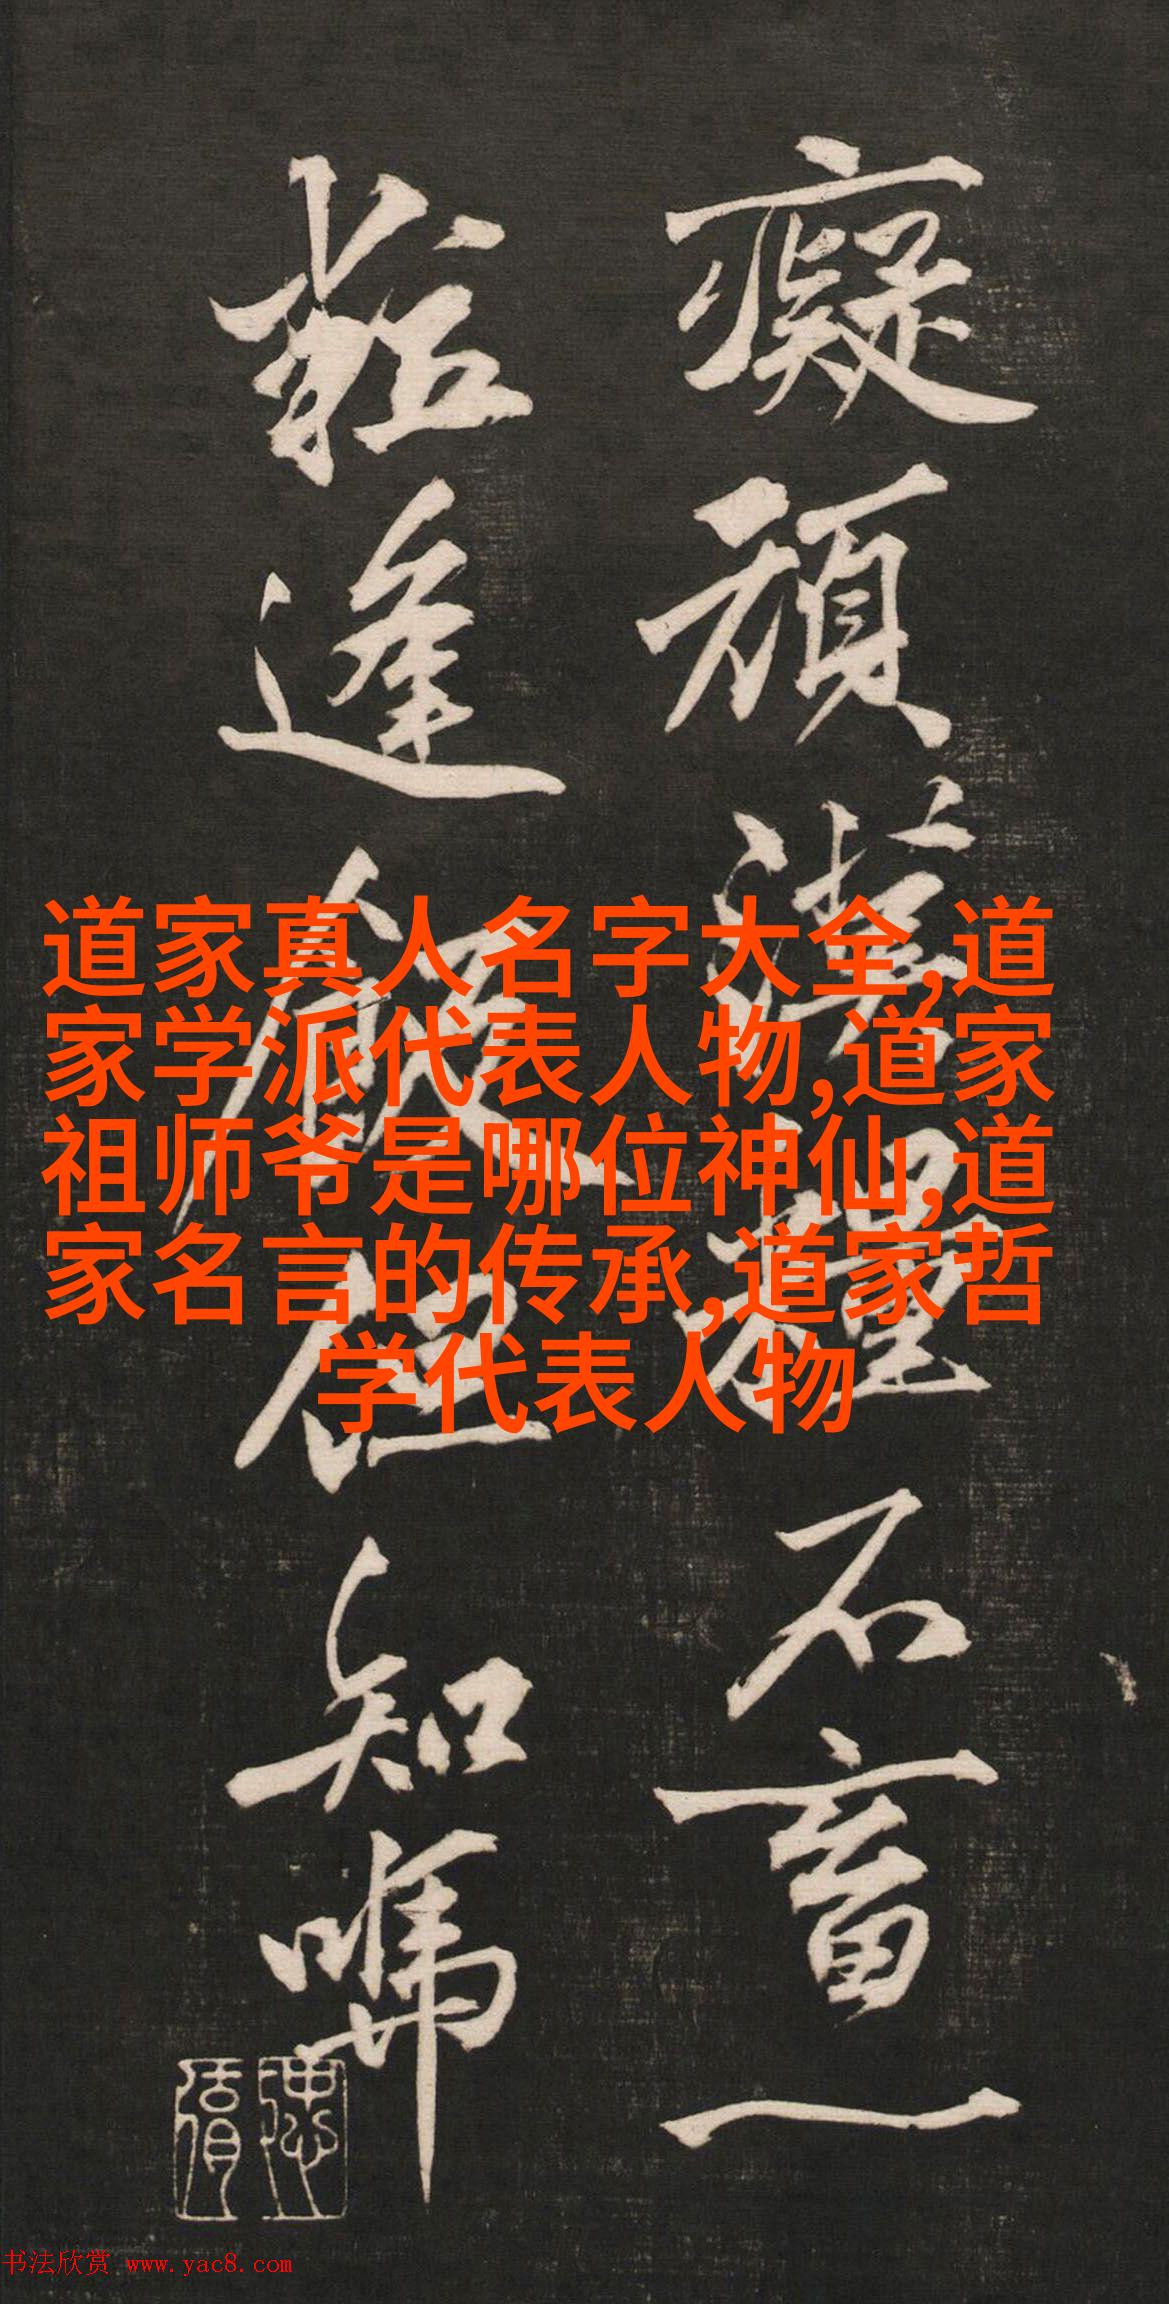 道家真人名字大全,道
家学派代表人物,道家
祖师爷是哪位神仙,道
家名言的传承,道家哲
学代表人物
癡頑石畜一
逢飯但知
书法欣赏 www.yac8.com